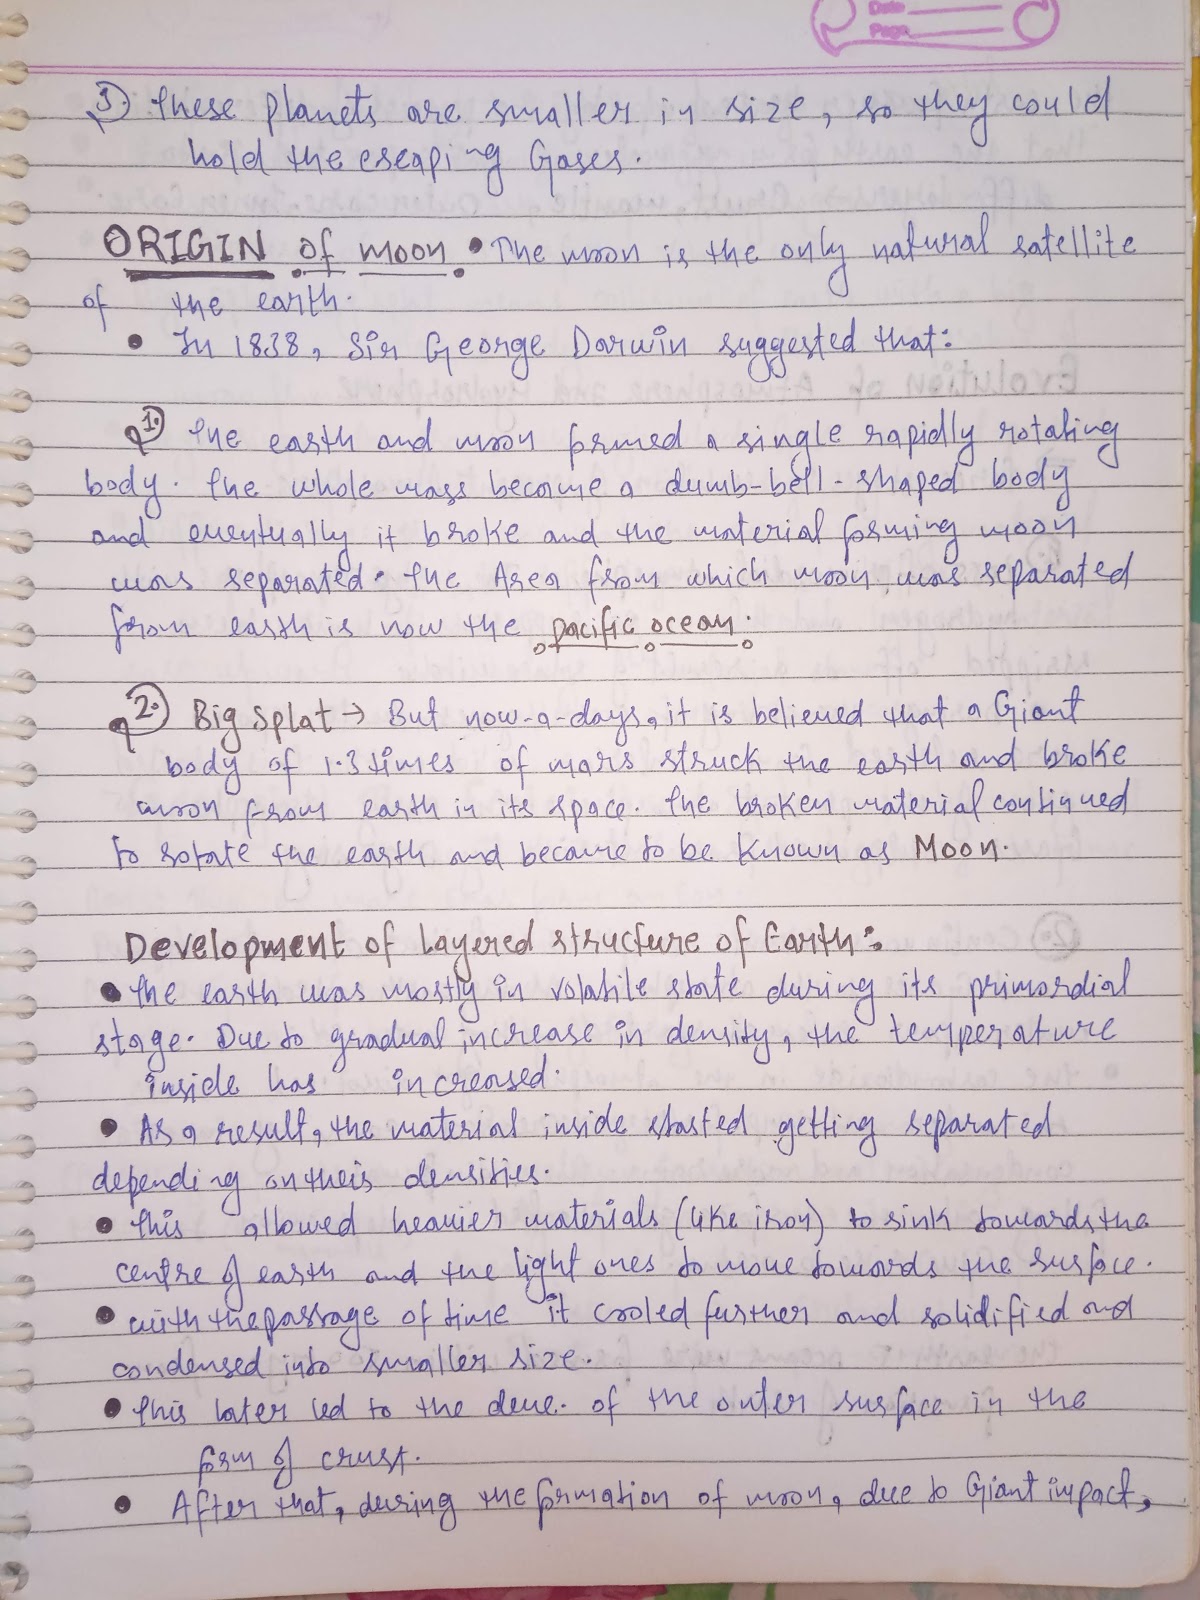 Date
Page
3. These planets are smaller in size, so they could
hold the escaping Gases.
ORIGIN of moon • The moon is the only natural satellite
of the earth.
• In 1838, Sir George Darwin suggested that:
1. The earth and moon formed a single rapidly rotating
body. The whole mass became a dumb-bell-shaped body
and eventually it broke and the material forming moon
was separated. The Area from which moon was separated
from earth is now the pacific ocean.
2. Big Splat → But now-a-days, it is believed that a Giant
body of 1.3 times of mars struck the earth and broke
moon from earth in its space. The broken material continued
to rotate the earth and became to be known as Moon.
Development of Layered structure of Earth:
• The earth was mostly in volatile state during its primordial
stage. Due to gradual increase in density, the temperature
inside has increased.
• As a result, the material inside started getting separated
depending on their densities.
• This allowed heavier materials (like iron) to sink towards the
centre of earth and the light ones to move towards the surface.
• with the passage of time it cooled further and solidified and
condensed into smaller size.
• This later led to the deve. of the outer surface in the
form of crust.
• After that, during the formation of moon, due to Giant impact,